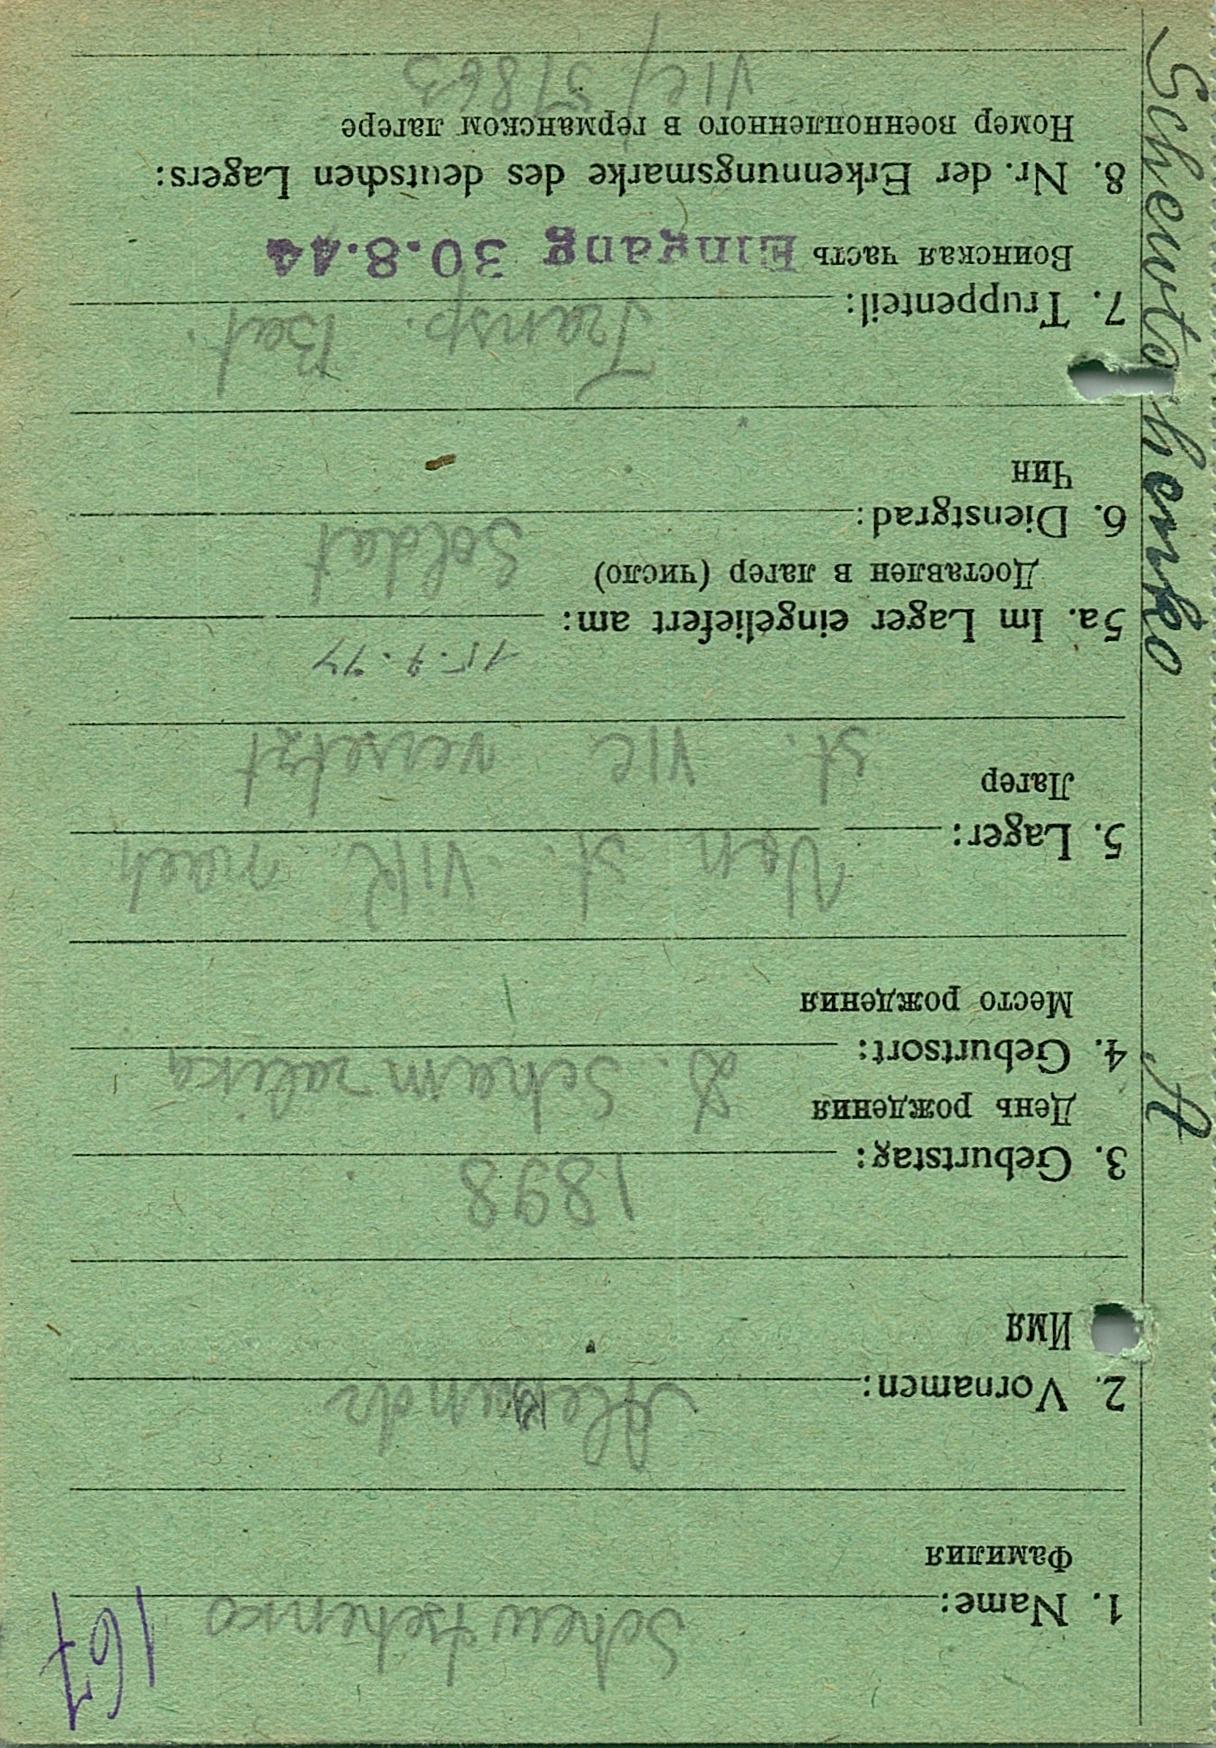 167
1. Name: Schewtschenko
Фамилия
2. Vornamen: Alexandr
Имя
3. Geburtstag: 1898
День рождения
4. Geburtsort: D.
Место рождения
5. Lager: Von St. VIK nach
Лагер
St. VIC versetzt
5a. Im Lager eingeliefert am:
Доставлен в лагер (число)
6. Dienstgrad: Soldat
Чин
7. Truppenteil: Transp. Bat.
Воинская часть Eingang 30.8.44
8. Nr. der Erkennungsmarke des deutschen Lagers:
Номер военнопленного в германском лагере
VIC/57863
Schewtschenko A